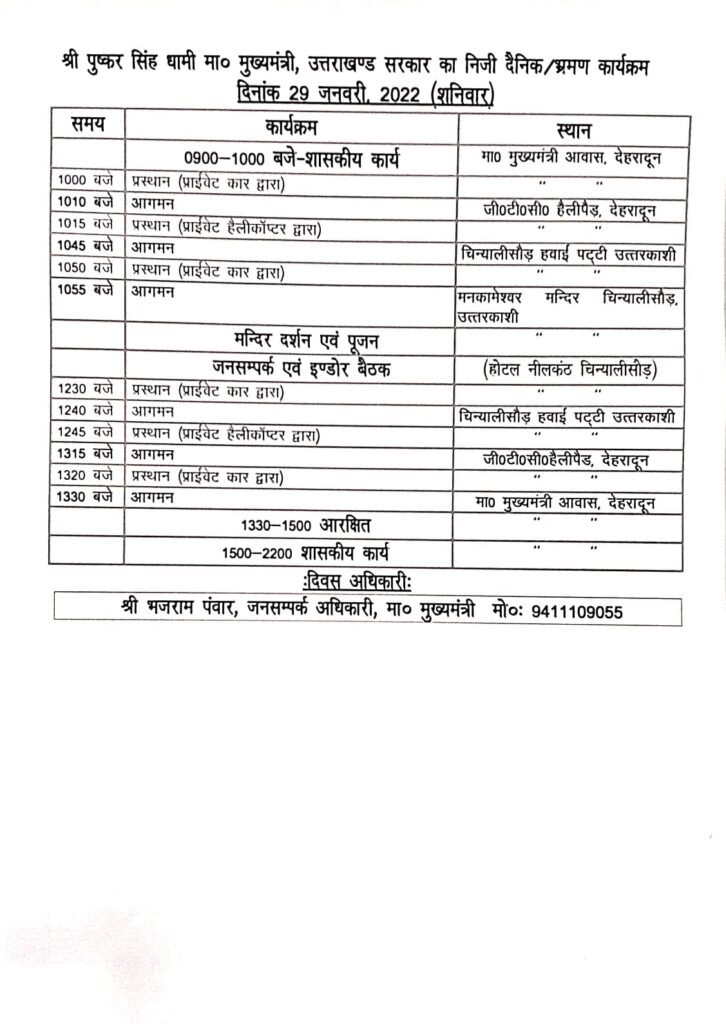 श्री पुष्कर सिंह धामी मा० मुख्यमंत्री, उत्तराखण्ड सरकार का निजी दैनिक/भ्रमण कार्यक्रम
दिनांक 29 जनवरी, 2022 (शनिवार)
समय कार्यक्रम स्थान
0900–1000 बजे-शासकीय कार्य मा0 मुख्यमंत्री आवास, देहरादून
1000 बजे प्रस्थान (प्राईवेट कार द्वारा) “ “
1010 बजे आगमन जी0टी0सी0 हैलीपैड़, देहरादून
1015 बजे प्रस्थान (प्राईवेट हैलीकॉप्टर द्वारा) “ “
1045 बजे आगमन चिन्यालीसौड़ हवाई पट्टी उत्तरकाशी
1050 बजे प्रस्थान (प्राईवेट कार द्वारा) “ “
1055 बजे आगमन मनकामेश्वर मन्दिर चिन्यालीसौड़,
उत्तरकाशी
मन्दिर दर्शन एवं पूजन “ “
जनसम्पर्क एवं इण्डोर बैठक (होटल नीलकंठ चिन्यालीसौड़)
1230 बजे प्रस्थान (प्राईवेट कार द्वारा) “ “
1240 बजे आगमन चिन्यालीसौड़ हवाई पट्टी उत्तरकाशी
1245 बजे प्रस्थान (प्राईवेट हैलीकॉप्टर द्वारा) “ “
1315 बजे आगमन जी0टी0सी0हैलीपैड, देहरादून
1320 बजे प्रस्थान (प्राईवेट कार द्वारा) “ “
1330 बजे आगमन मा0 मुख्यमंत्री आवास, देहरादून
1330-1500 आरक्षित “ “
1500–2200 शासकीय कार्य “ “
:दिवस अधिकारी:
श्री भजराम पंवार, जनसम्पर्क अधिकारी, मा० मुख्यमंत्री मो०: 9411109055